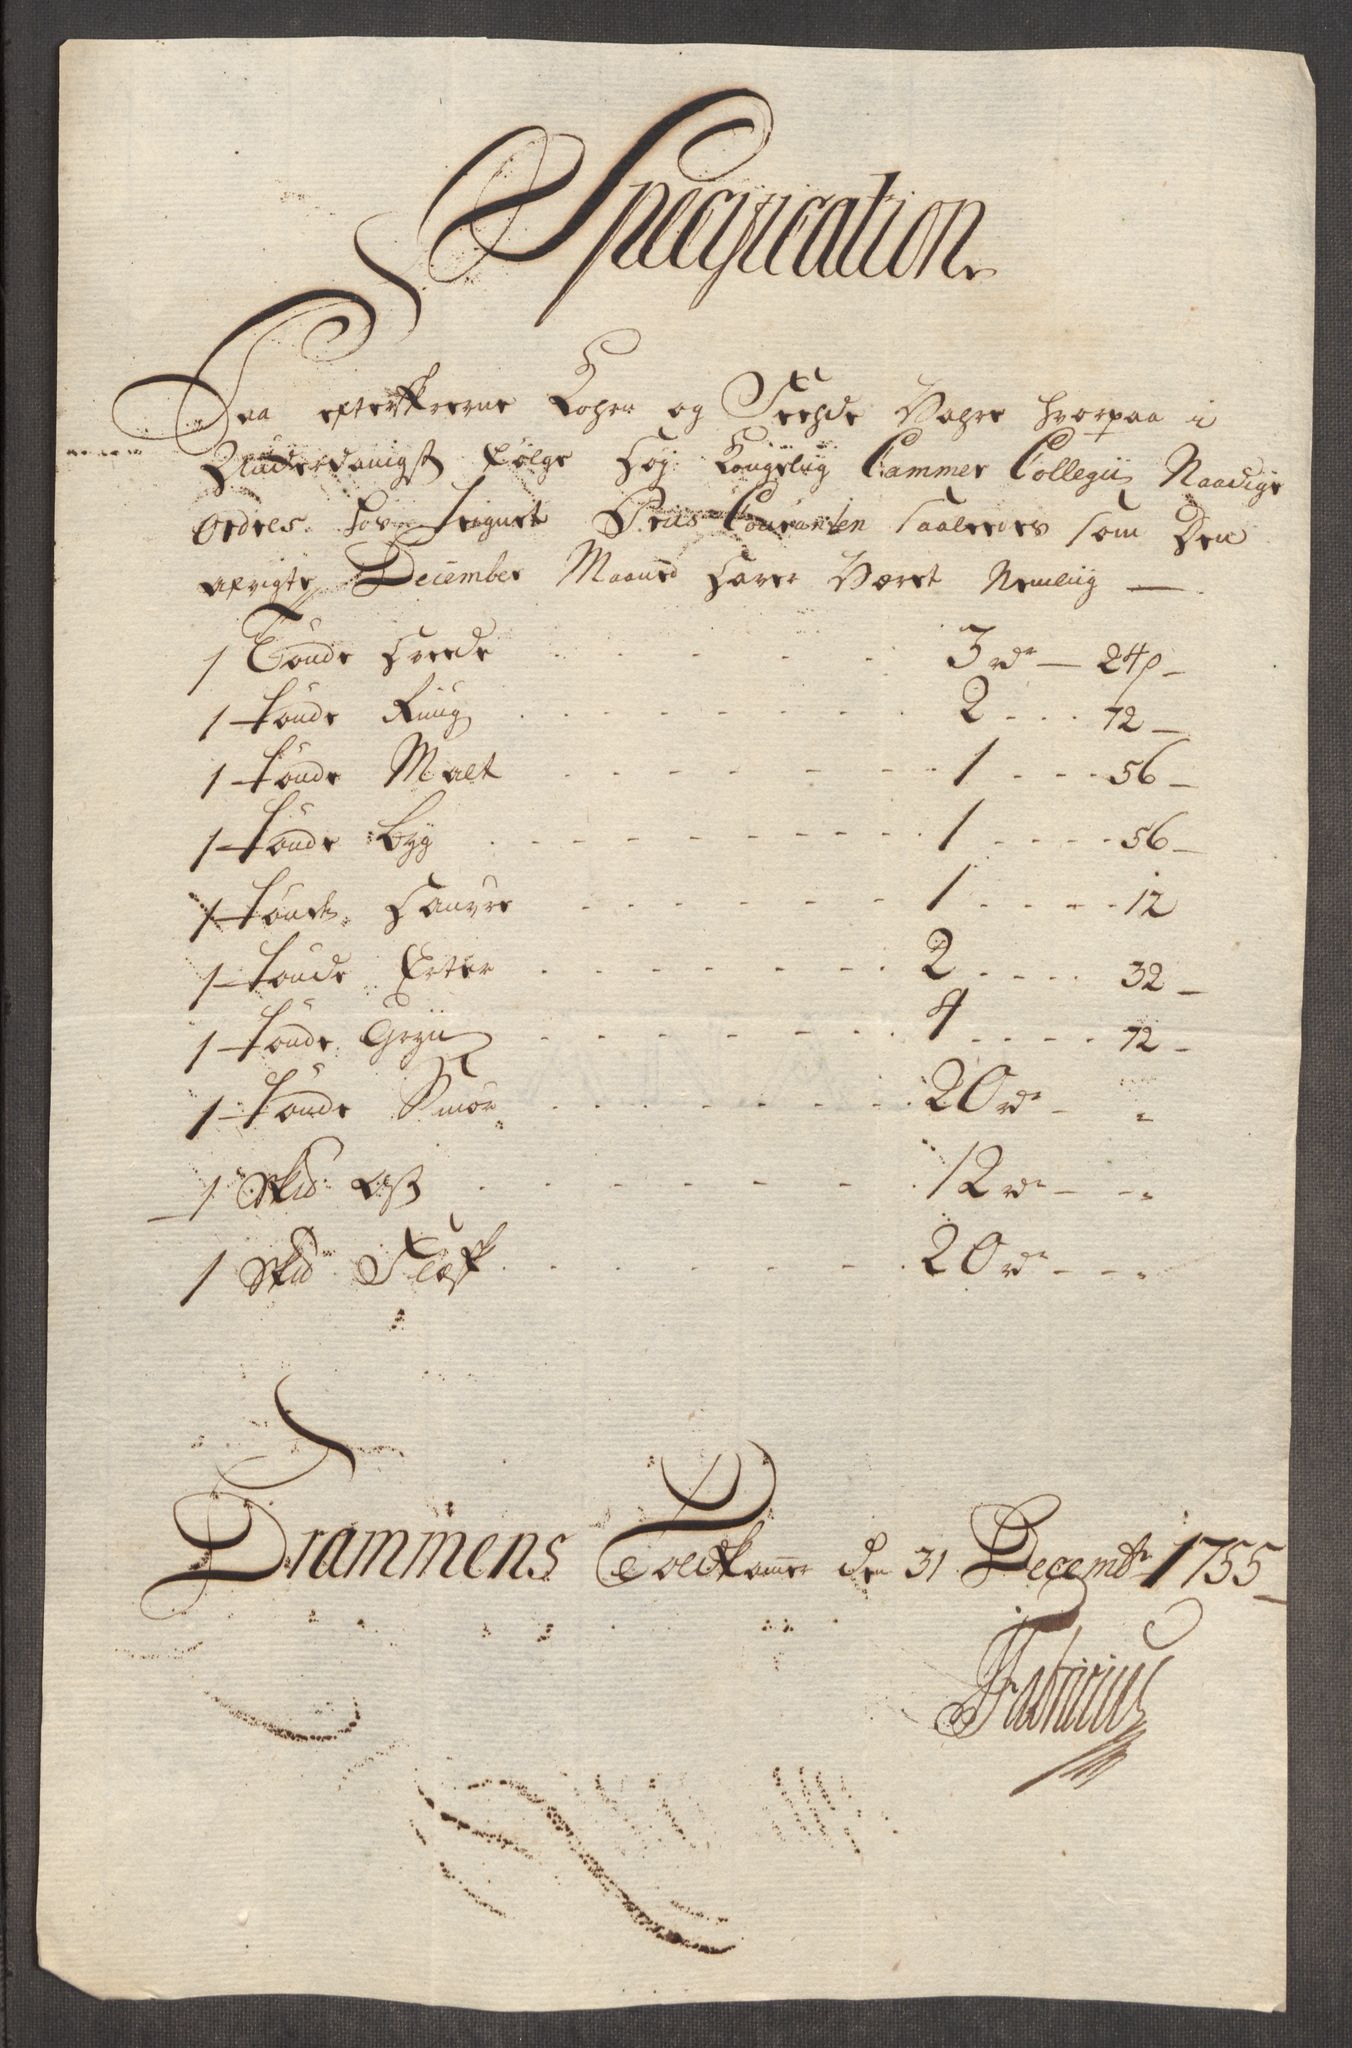 Specification
Paa efterskrevne Kohrn og Feehde Vahre hvorpaa i
Underdanigst følge Høj Kongelig Cammer Collegii Naadige
Ordres for Priis Couranten saaledes som den
afvigte December Maaned haver Været Nemlig —
1 Tønde Hvede . . . . . 3 rdr — 24 s —
1 tønde Rúúg . . . . . 2 . . . 72 —
1 tønde Malt . . . . . 1 . . . 56 —
1 tønde byg . . . . . 1 . . . 56 —
1 tønde Haufre . . . . . 1 . . . 12
1 tønde Erter . . . . . 2 . . . 32 —
1 tønde Gryn . . . . . 4 . . . 72 —
1 tønde Smør . . . . . 20 rdr — "
1 Skid Ost . . . . . 12 rdr — "
1 Skid Flæsk . . . . . 20 rdr — "
Drammens Toldkamer den 31 Decembr 1755
Fabricius